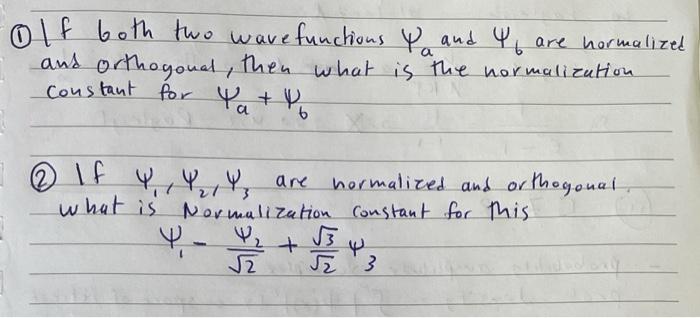 ① If both two wavefunctions Ψa and Ψb are normalized
and orthogonal, then what is the normalization
constant for Ψa + Ψb
② If Ψ1, Ψ2, Ψ3 are normalized and orthogonal.
what is Normalization constant for this
Ψ1 - Ψ2/√2 + √3/√2 Ψ3